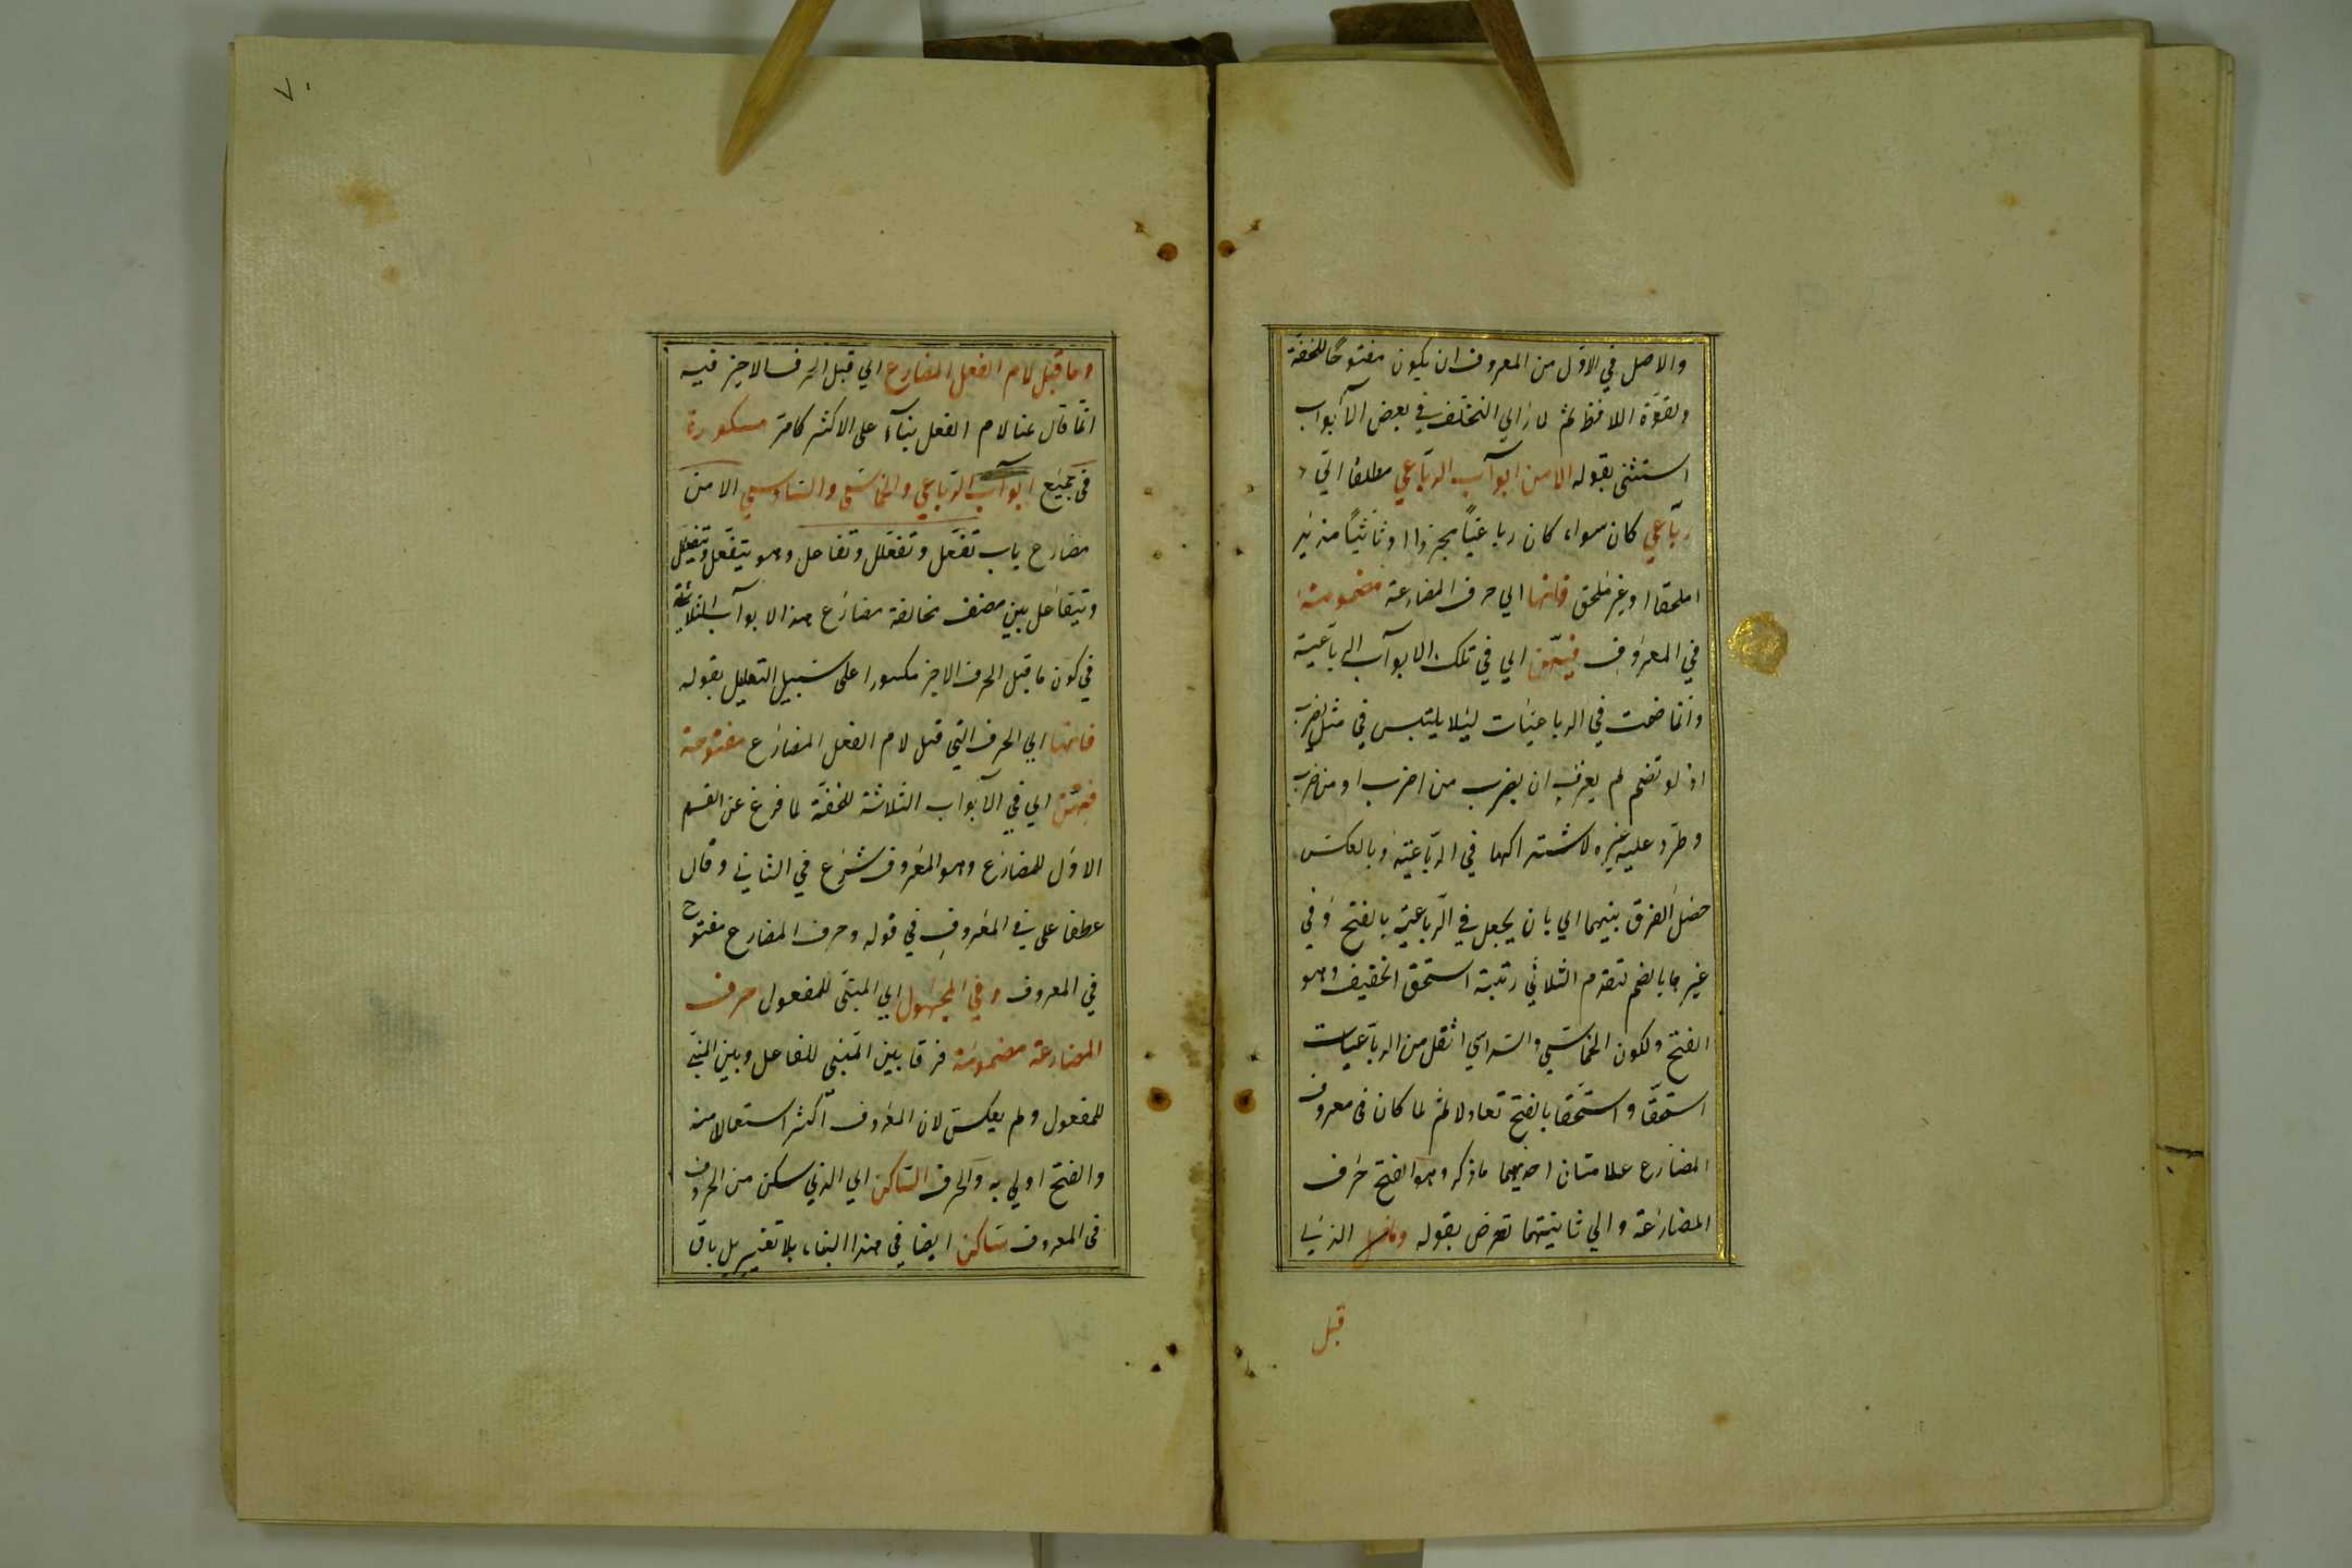 والاصل في الاوّل من المعروف ان يكون مفتوحًا للخفة
ولقوّة اللافظ ثم لما رٰاي التخلف في بعض الٓابواب
استثنى بقوله الا من ابوآب الرّباعي مطلقا ايّ
ربّاعي كان سواء كان رباعيًا مجردا او ثلاثيًا مزيد
املحقا او غير ملحق فانها اي حرف المضارعة مضمومة
في المعروف فيهنّ اي في تلك الابوآب الرباعية
وانما ضمت في الرباعيات ليئلا يلتبس في مثل يضرب
اذ لو تضم لم يعرف ان يضرب من اضرب او من ضرب
وطرّد عليه غيره لاشتراكهما في الربّاعية وبالعكس
حصل الفرق بينهما اي بان يجعل في الرّباعية بالفتح وفي
غير ها بالضم لتقدم الثلاثي رتبة استحق الخفيف وهو
الفتح ولكون الخماسي والسداسي اثقل من الربّاعيات
استحقّا واستحّقا بالفتح تعادلا ثم لما كان في معروف
المضارع علامتان احديهما ما ذكر وهو الفتح حرف
المضارعة والي ثانيتهما تعرض بقوله وما قبل الذي
قبل
٧٠
وما قبل لام الفعل المضارع اي قبل الحرف الاخير فيه
انّما قال عنا لام الفعل بنآء على الاكثر كما مر مسكورة
في جميع ابوآب الرباعي والخماسي والسّداسي الا من
مضارع باب تفعّل وتفعلل وتفاعل وهو يتفعل ويتفعلل
ويتفاعل بين مصنف مخالفة مضارع هذه الابوآب الثلاثة
في كون ما قبل الحرف الاخير مكسورا على سبيل التعليل بقوله
فانها اي الحرف التي قبل لام الفعل المضارع مفتوحة
فيهنّ اي في الٓابواب الثلاثة للخفّة لما فرغ عن القسم
الاوّل للمضارع وهو المعروف شرع في الثاني وقال
عطفا على في المعروف في قوله وحرف المضارع مفتوح
في المعروف وفي المجهول اي المبنّى للمفعول حرف
المضارعة مضمومة فرقا بين المبنى للفاعل وبين المبنّى
للمفعول ولم يعكس لان المعروف اكثر استعمالا منه
والفتح اولي به والحرف السّاكن اي الذي سكن من الحروف
في المعروف ساكن ايضا في هذا البناء بلا تغيير بل باق